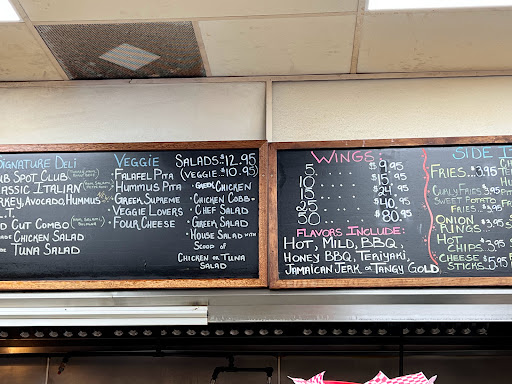 Signature Deli
Spot Club
Classic Italian
Turkey, Avocado, Hummus
Cold Cut Combo
Chicken Salad
Tuna Salad
Veggie
Falafel Pita
Hummus Pita
Greek Supreme
Veggie Lovers
Four Cheese
Salads $12.95
(Veggie $10.95)
Greek Chicken
Chicken Cobb
Chef Salad
Greek Salad
House Salad with
Scoop of
Chicken or Tuna
Salad
Wings:
5 .... $9.95
10 .... $15.95
15 .... $24.95
25 .... $40.95
50 .... $80.95
Flavors Include:
Hot, Mild, BBQ,
Honey BBQ, Teriyaki,
Jamaican Jerk or Tangy Gold
Side
Fries $3.95
Curly Fries $3.95
Sweet Potato
Fries $3.95
Onion
Rings $3.95
Hot
Chips $3.95
Cheese
Sticks $5.95